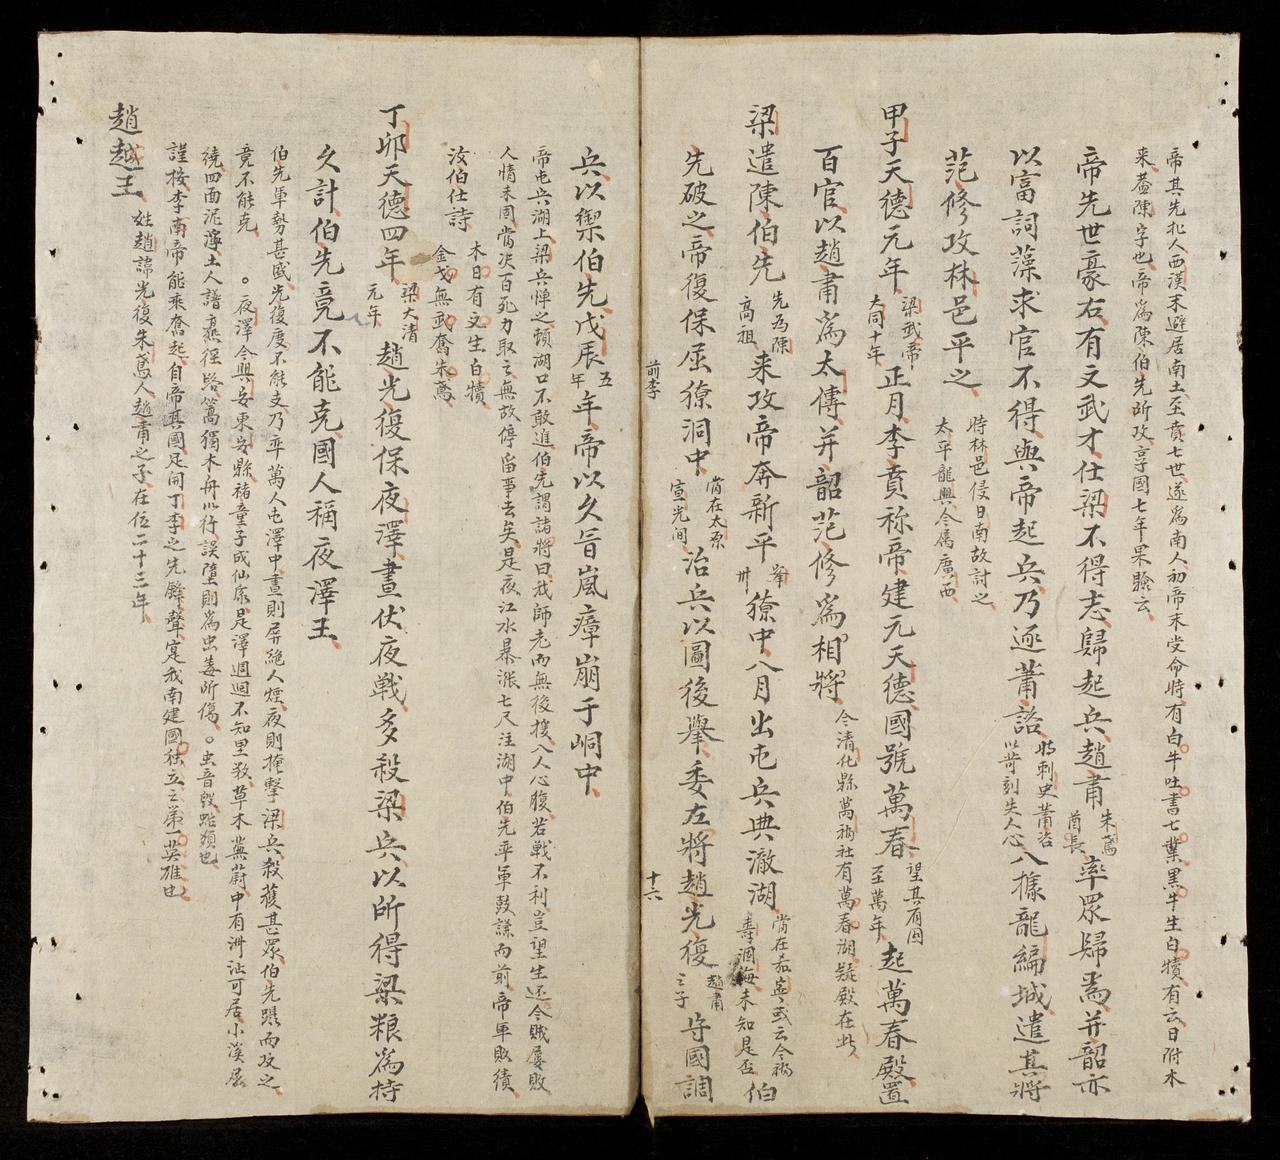 帝其先北人西漢末避居南土至賁七世遂為南人初帝未受命時有白牛吐書七葉黑牛生白犢有云日附木
来盖陳字也帝為陳伯先所攻享國七年果驗云
帝先世豪右有文武才仕梁不得志歸起兵趙肅朱鳶酋長率眾歸焉并韶亦
以富詞藻求官不得與帝起兵乃逐蕭諮時刺史蕭咨以苛刻失人心入據龍編城遣其將
范修攻林邑平之時林邑侵日南故討之太平龍興今属廣西
甲子天德元年梁武帝大同十年正月李賁称帝建元天德國號萬春望其有國至萬年起萬春殿置
百官以趙肅為太傅并韶范修為相將今清化縣萬福社有萬春湖疑殿在此
梁遣陳伯先先為陳高祖来攻帝奔新平峯州獠中八月出屯兵典澈湖
先破之帝復保屈獠洞中當在太原宣光間治兵以圖後舉委左將趙光復趙肅之子守國調
前李
十六
兵以禦伯先戊辰五年年帝以久冒嵐瘴崩于峒中
帝屯兵湖上梁兵惮之頓湖口不敢進伯先謂諸將曰我師老而無後援入人心腹若戰不利豈望生还今賊屡敗
人情未固當决百死力取之無故停留事去矣是夜江水暴漲七尺注湖中伯先率軍鼓譟而前帝軍敗績
汝伯仕詩木日有文生白犢金戈無武奮朱鳶
丁卯天德四年梁大清元年趙光復保夜澤晝伏夜戰多殺梁兵以所得梁粮為持
久計伯先竟不能克國人稱夜澤王
伯先軍勢甚盛光復度不能支乃率萬人屯澤中晝則屏絕人煙夜則掩擊梁兵殺获甚眾伯先踪而攻之
竟不能克。夜澤今興安東安縣褚童子成仙處是澤週迴不知里数草木叢蔚中有洲沚可居小溪屈
繞四面泥濘土人諳熟徑路篙獨木舟以行誤墮則為虫毒所傷。虫音毀蛇類也
謹按李南帝能乘奮起自帝其國足開丁李之先鋒聲寔我南建國独立之第一英雄也
趙越王姓趙諱光復朱鳶人趙肅之子在位二十三年